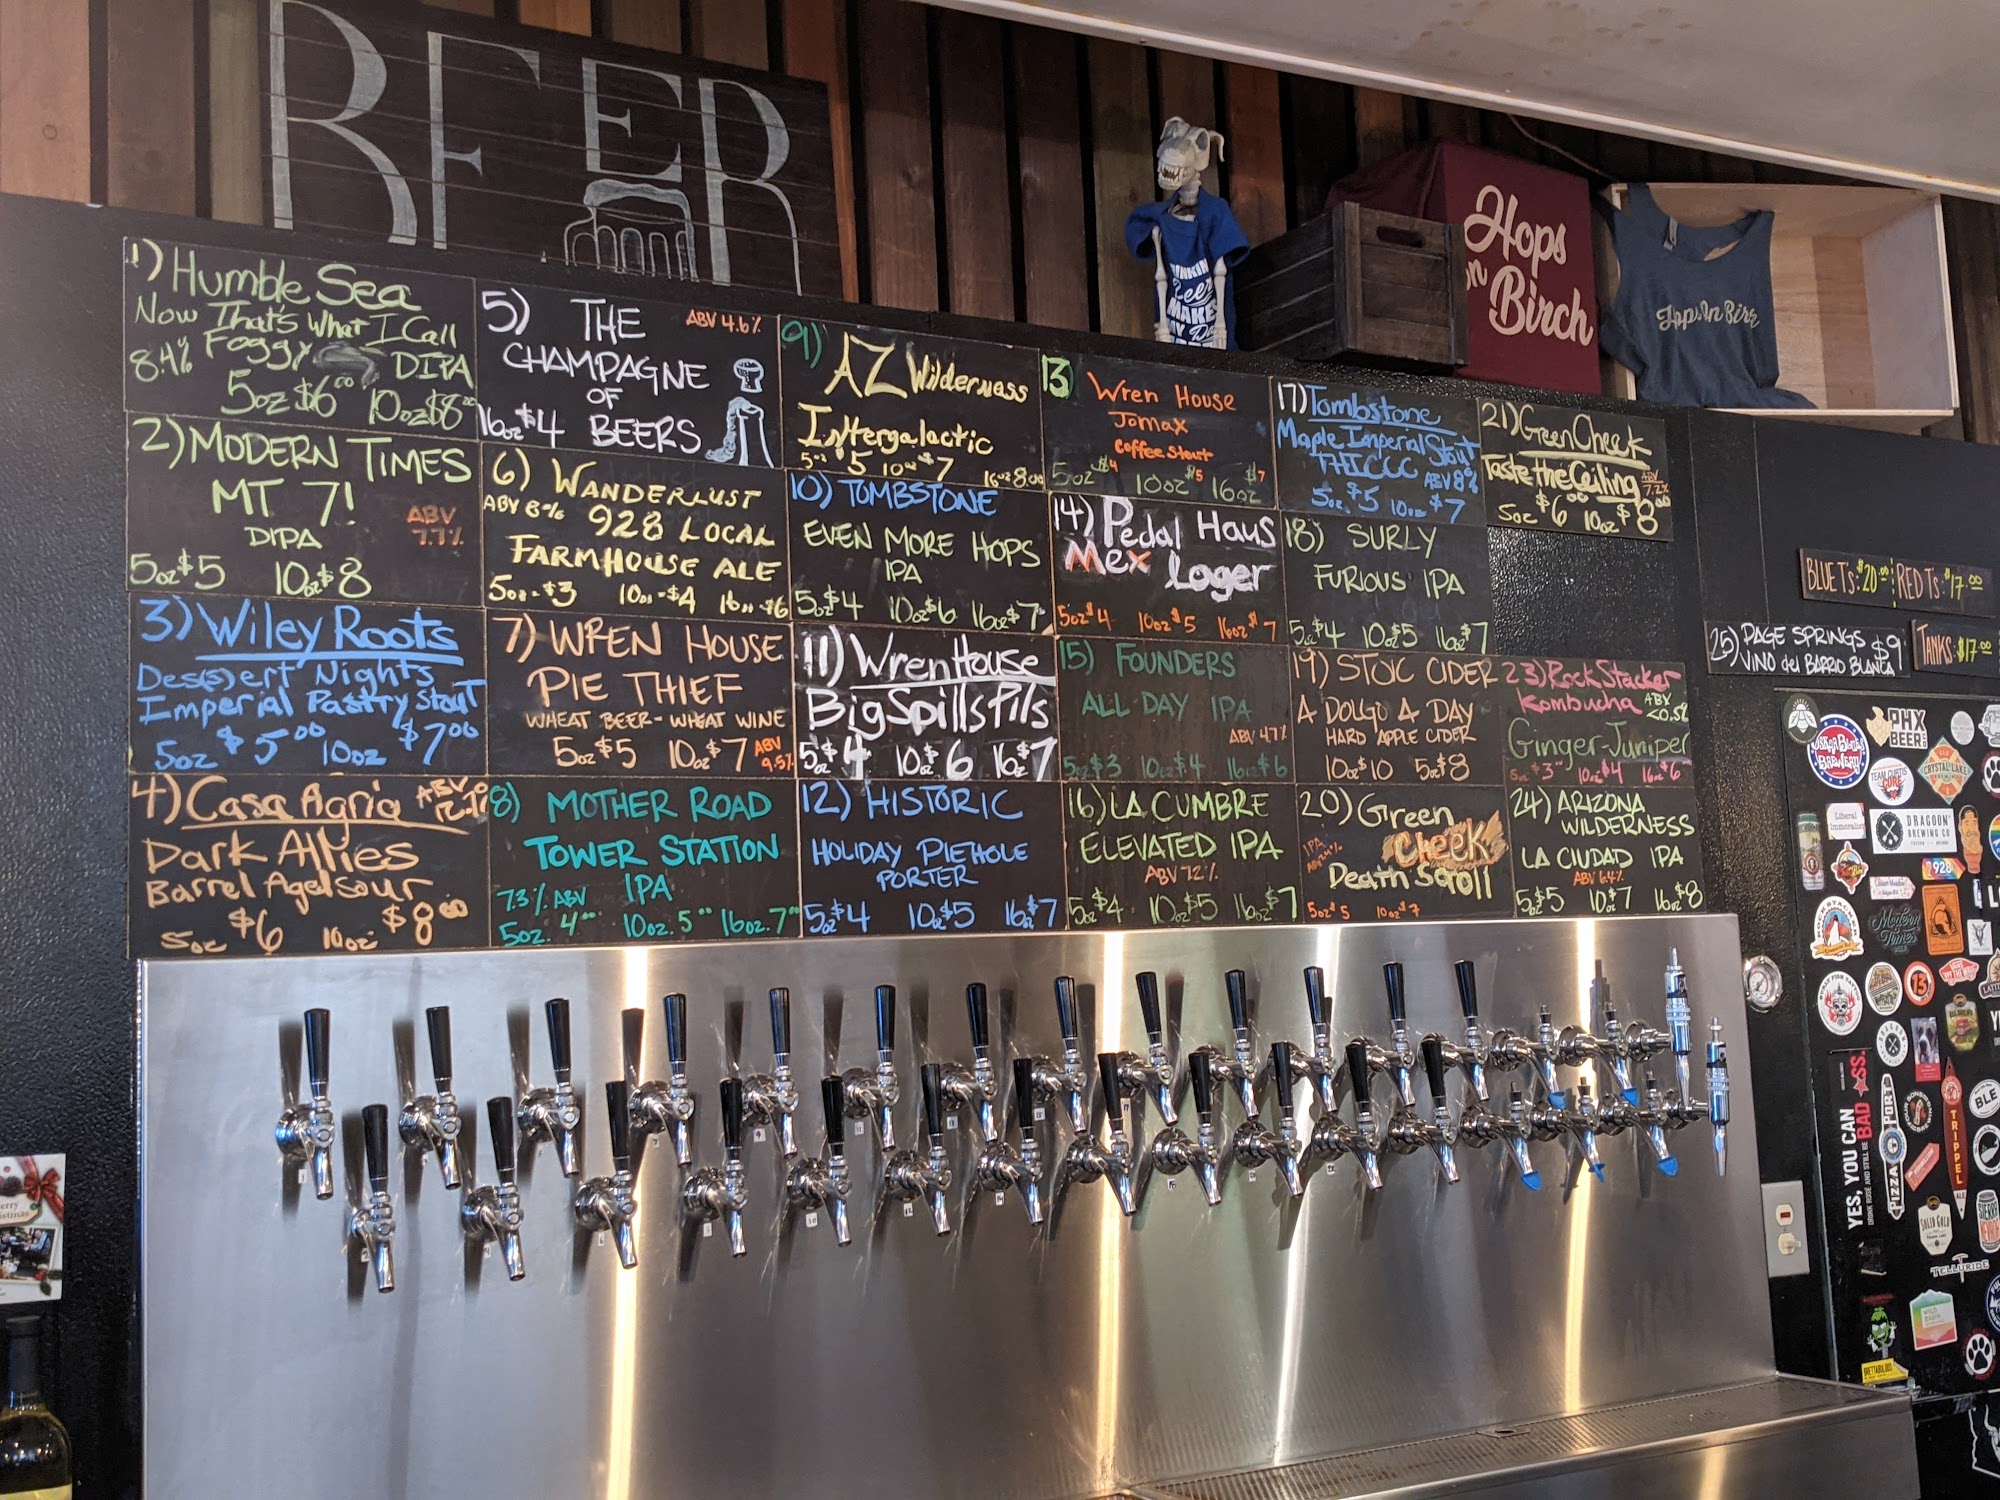 BEER
1) Humble Sea
Now That's What I Call
Foggy DIPA
8.4%
5oz $6.00 10oz $8.00
2) MODERN TIMES
MT 7!
DIPA
ABV 7.7%
5oz $5 10oz $8
3) Wiley Roots
Des(s)ert Nights
Imperial Pastry Stout
5oz $5.00 10oz $7.00
4) Casa Agria
Dark Allies
Barrel Aged Sour
5oz $6 10oz $8.00
5) THE
CHAMPAGNE
OF
BEERS
ABV 4.6%
16oz $4
6) WANDERLUST
ABV 8% 928 LOCAL
FARMHOUSE ALE
5oz-$3 10oz-$4 16oz-$6
7) WREN HOUSE
PIE THIEF
WHEAT BEER-WHEAT WINE
5oz $5 10oz $7 ABV 9.5%
8) MOTHER ROAD
TOWER STATION
7.3% ABV IPA
5oz. 4 10oz. 5 16oz. 7
9) AZ Wilderness
Intergalactic
5oz 5 10oz $7 16oz 8.00
10) TOMBSTONE
EVEN MORE HOPS
IPA
5oz $4 10oz $6 16oz $7
11) Wren House
Big Spills Pils
5oz $4 10oz $6 16oz $7
12) HISTORIC
HOLIDAY PIEHOLE
PORTER
5oz $4 10oz $5 16oz $7
13 Wren House
Jomax
Coffee Stout
5oz $4 10oz $5 16oz $7
14) Pedal Haus
Mex Lager
5oz $4 10oz $5 16oz $7
15) FOUNDERS
ALL DAY IPA
ABV 4.7%
5oz $3 10oz $4 16oz $6
16) LA CUMBRE
ELEVATED IPA
ABV 7.2%
5oz $4 10oz $5 16oz $7
17) Tombstone
Maple Imperial Stout
THICCC ABV 8%
5oz $5 10oz $7
18) SURLY
FURIOUS IPA
5oz $4 10oz $5 16oz $7
19) STOIC CIDER
A DOLGO A DAY
HARD APPLE CIDER
10oz $10 5oz $8
20) Green
Cheek
Death Scroll
5oz $5 10oz $7
21) Green Cheek
Taste the Ceiling
ABV 7.2%
5oz $6.00 10oz $8.00
23) RockStacker
Kombucha ABV <0.5%
Ginger-Juniper
5oz $3 10oz $4 16oz $6
24) ARIZONA
WILDERNESS
LA CIUDAD IPA
ABV 6.4%
5oz $5 10oz $7 16oz $8
25) PAGE SPRINGS $9
VINO del BARRIO BLANCA
BLUE T's: $20.00 RED T's: $17.00
TANKS: $17.00
Hops
on
Birch
Hops On Birch
Beer
MAKES
MY
OSKAR BLUES
BREWERY
PHX
BEER
TEAM CURTIS
CRYSTAL LAKE
Liberal
Immoralist
DRAGOON
BREWING CO
928
ROCK STACKER
Modern
Times
13
YES, YOU CAN
DRINK ROSÉ AND STILL BE BAD
PORT
PIZZA
TRIPPEL
ALE
BLE
SOLID GOLD
TELLURIDE
BRETTABOLOUS